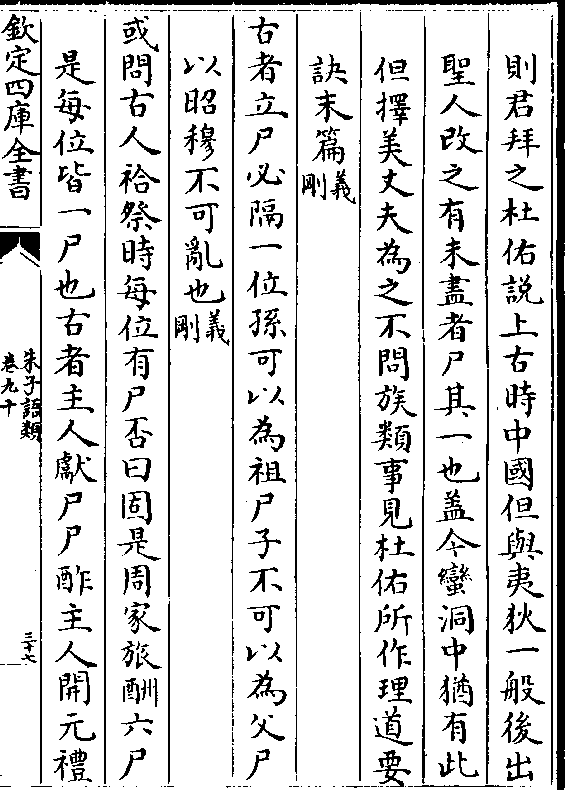 則君拜之杜佑説上古時中國但與夷狄一般後出
聖人改之有未盡者尸其一也盖今蠻洞中猶有此
但擇美丈夫為之不問族類事見杜佑所作理道要
訣末篇義剛
古者立尸必隔一位孫可以為祖尸子不可以為父尸
以昭穆不可亂也義剛
或問古人祫祭時每位有尸否曰固是周家旅酬六尸
是每位皆一尸也古者主人獻尸尸酢主人開元禮
欽定四庫全書
朱子語類
卷九十
三十七